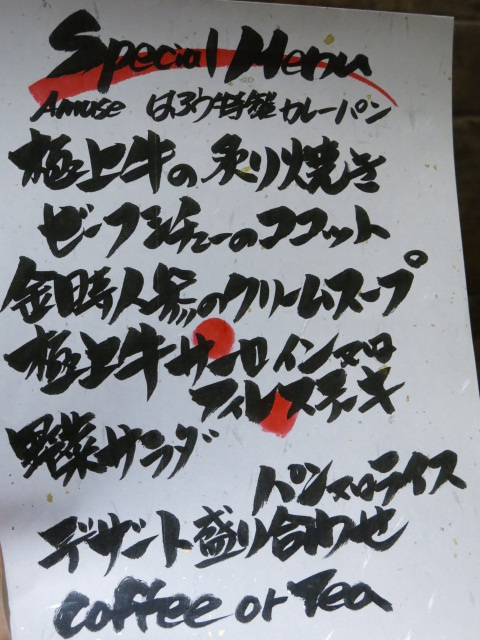 Special Menu
Amuse はふう特製カレーパン
極上牛の炙り焼き
ビーフシチューのココット
金時人参のクリームスープ
極上牛サーロイン又は
フィレステーキ
野菜サラダ
パン又はライス
デザート盛り合わせ
Coffee or Tea